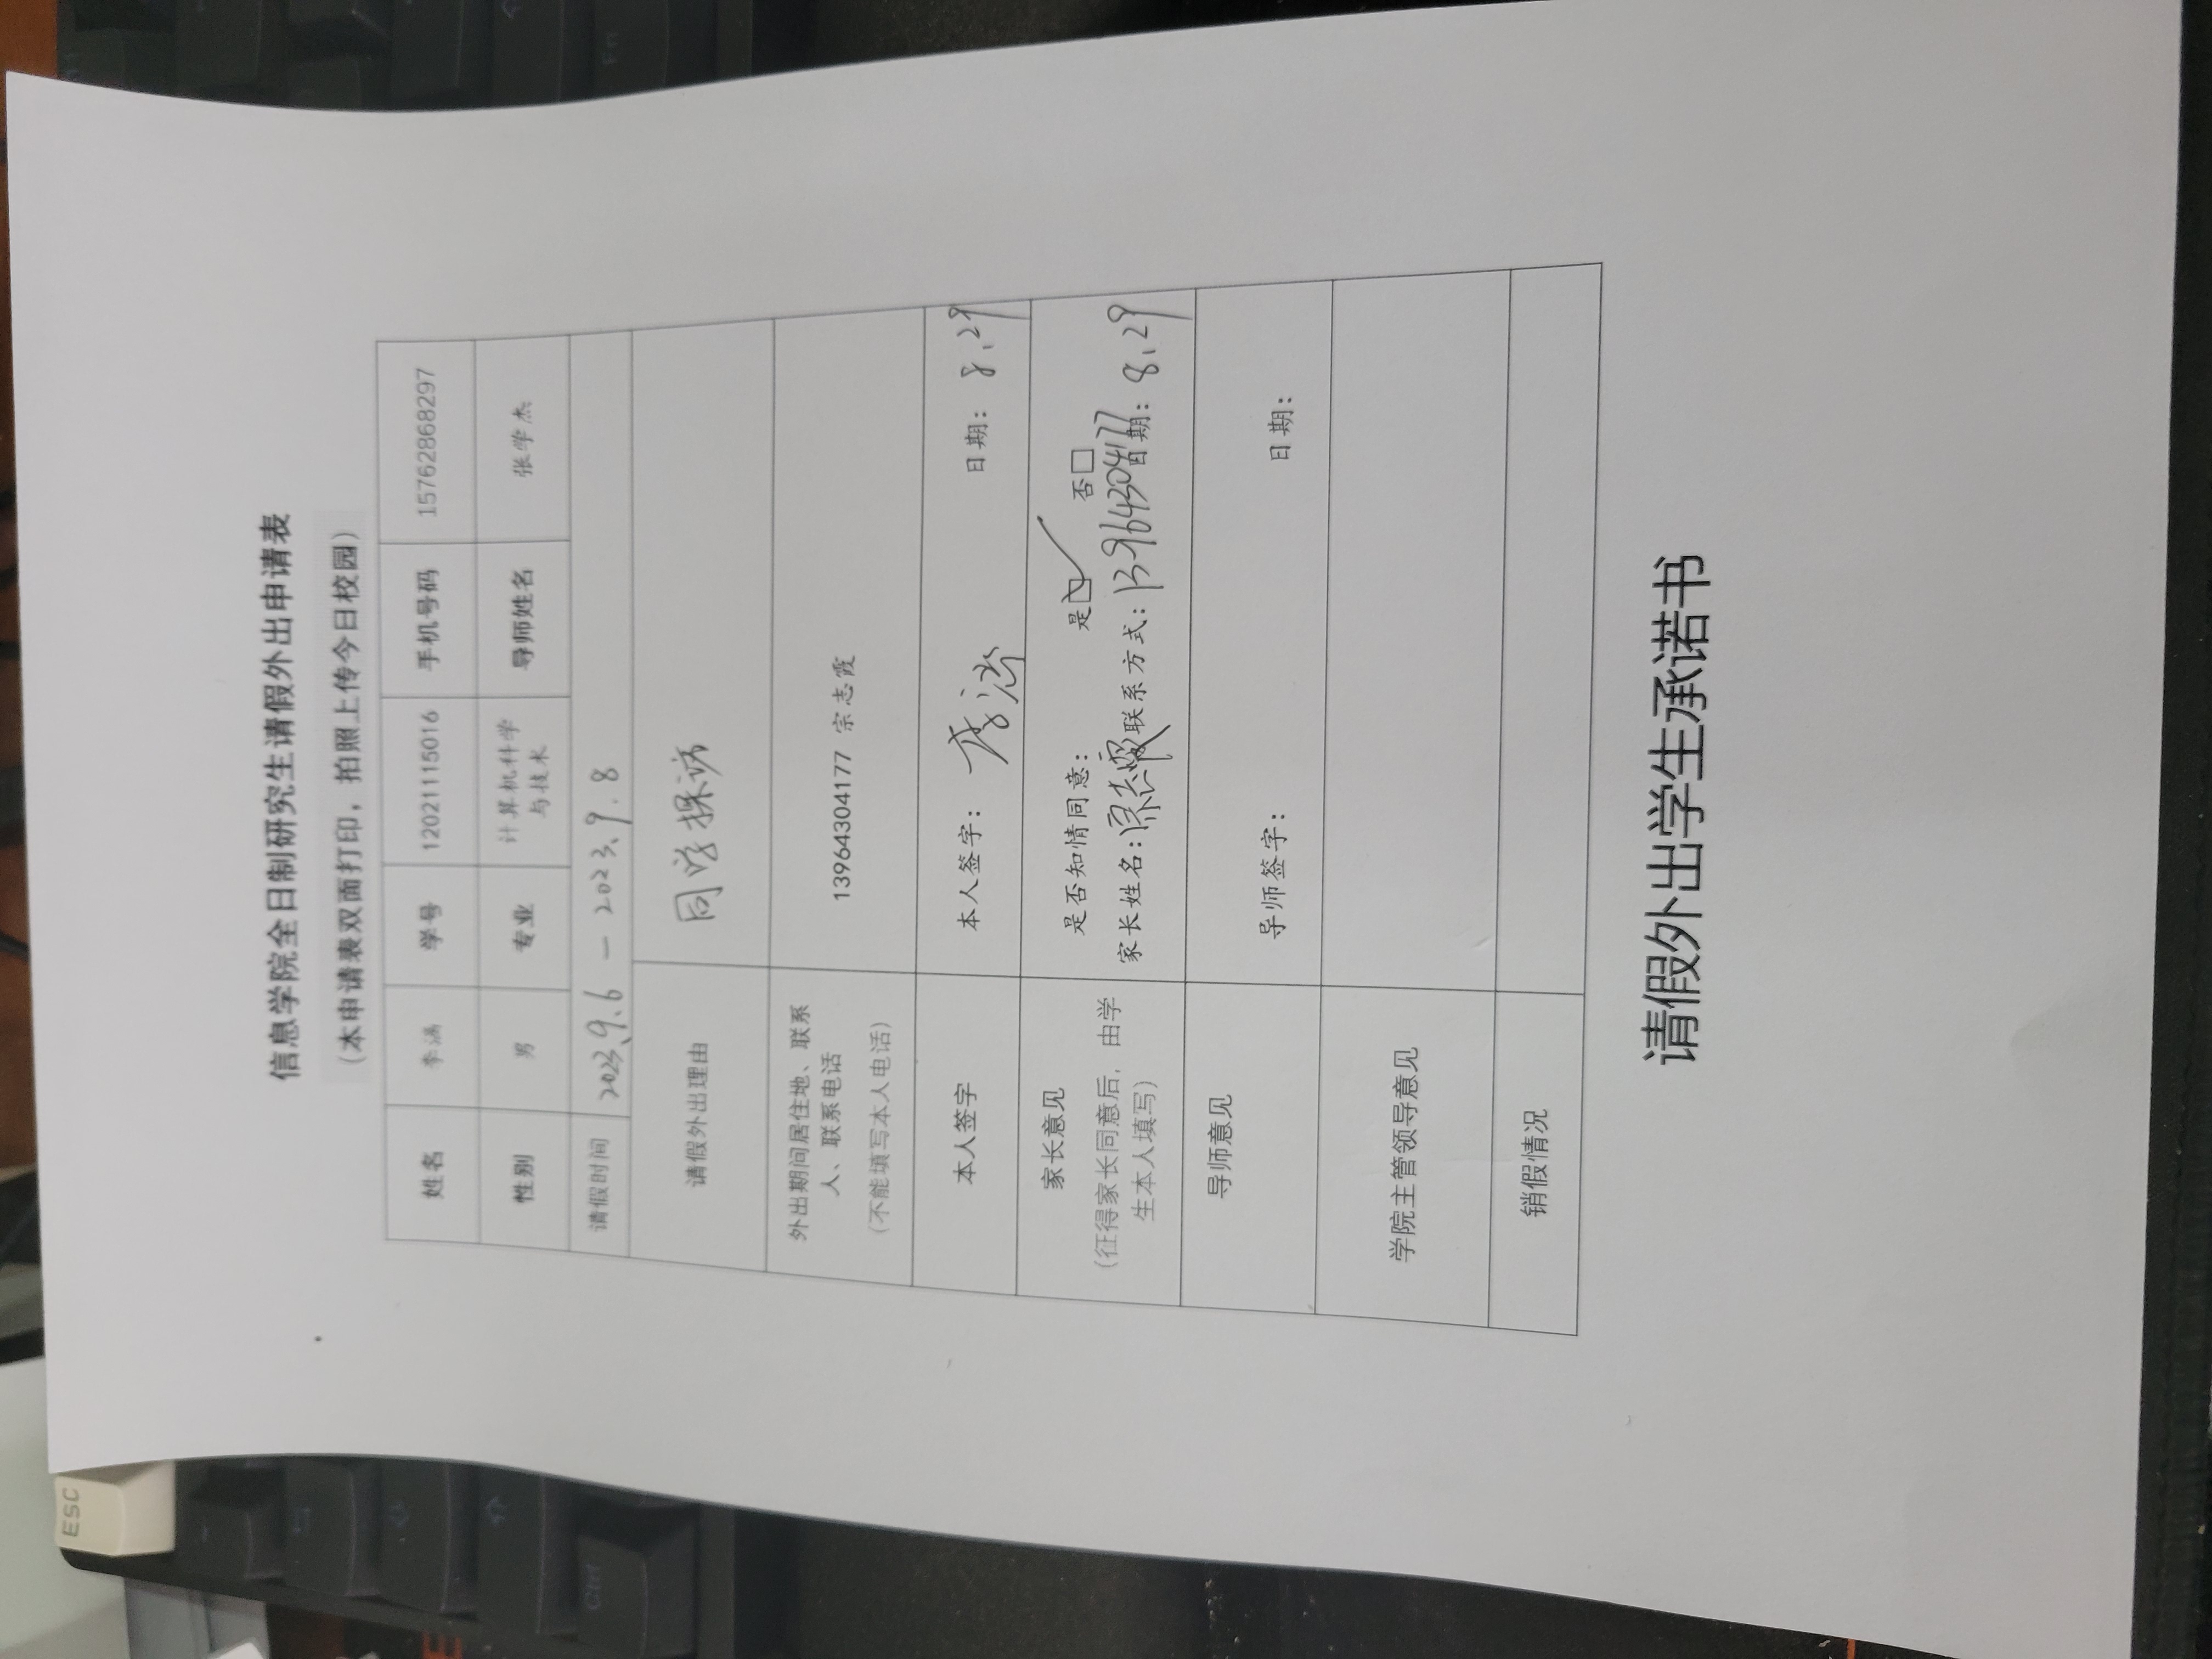 ESC
信息学院全日制研究生请假外出申请表
（本申请表双面打印，拍照上传今日校园）
姓名 李 学号 12021115016 手机号码 15762868297
性别 男 专业 计算机科学与技术 导师姓名 张学杰
请假时间 2023.9.6 — 2023.9.8
请假外出理由 同学探访
外出期间居住地、联系
人、联系电话
（不能填写本人电话）
13964304177 宗志霞
本人签字 本人签字： 李 日期： 8.29
家长意见
（征得家长同意后，由学
生本人填写）
是否知情同意： 是☑ 否□
家长姓名：宗志霞 联系方式：13964304177 日期：8.29
导师意见
导师签字： 日期：
学院主管领导意见
销假情况
请假外出学生承诺书
Ctrl
Fn